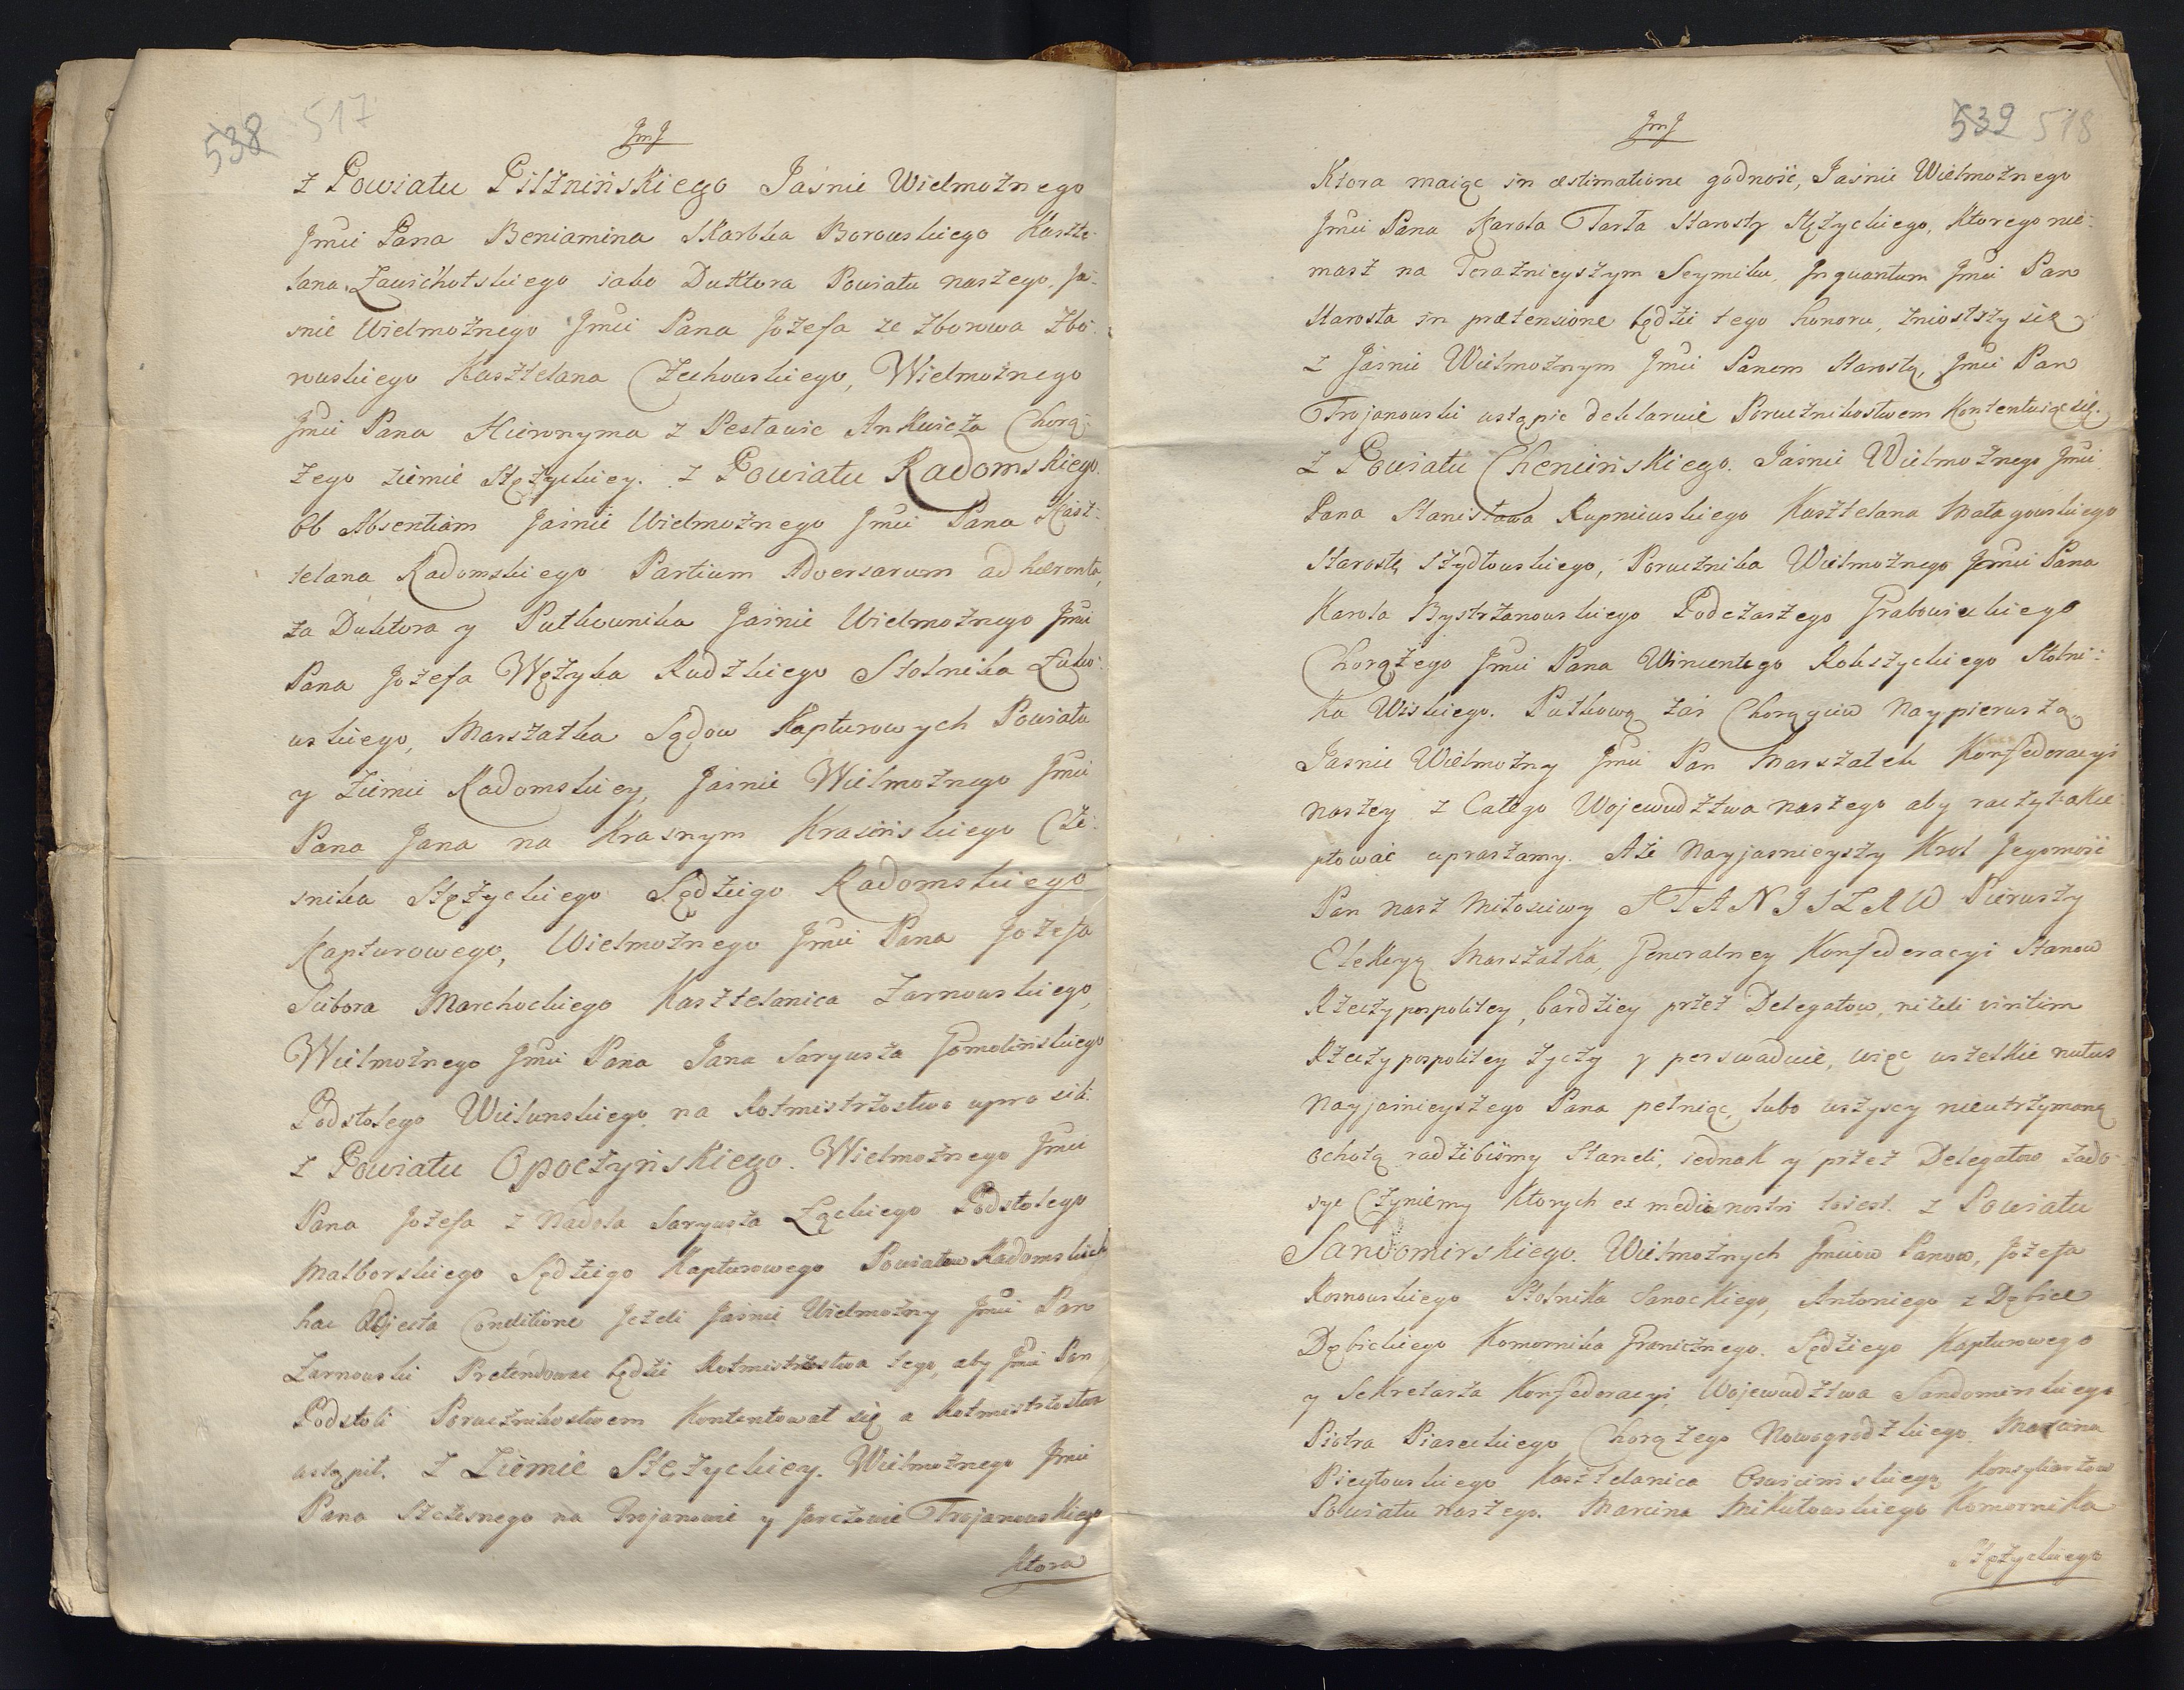 538 517
JmJ
z Powiatu Pilznińskiego Jaśnie Wielmożnego
Jmći Pana Beniamina Skarbka Borowskiego Kaszte-
lana Zawichotskiego iako Duktora Powiatu naszego, Ja-
śnie Wielmożnego Jmći Pana Jozefa ze Zborowa Zbo-
rowskiego Kasztelana Czechowskiego, Wielmożnego
Jmći Pana Hieronyma z Pestawic Ankwicza Chorą-
żego ziemie Stężyckiey. z Powiatu Radomskiego.
Ob Absentiam Jaśnie Wielmożnego Jmći Pana Kasz-
telana Radomskiego Partium Adversarum adhærenta,
za Duktora y Putkownika Jaśnie Wielmożnego Jmći
Pana Jozefa Wężyka Rudzkiego Stolnika Łuko-
wskiego, Marszatka Sądow Kapturowych Powiatu
y Ziemie Radomskiey, Jaśnie Wielmożnego Jmći
Pana Jana na Krasnym Krasińskiego Cze-
śnika Stężyckiego Sędziego Radomskiego
Kapturowego, Wielmożnego Jmći Pana Jozefa
Scibora Marchockiego Kasztelanica Zarnowskiego,
Wielmożnego Jmći Pana Jana Saryusza Gomolińskiego
Podstolego Wielunskiego na Rotmistrzostwo uprosili.
z Powiatu Opoczyńskiego. Wielmożnego Jmći
Pana Jozefa z Nadola Saryusza Łąckiego Podstolego
Malborskiego Sędziego Kapturowego Powiatow Radomskich
hac Adjecta Conditione Jeżeli Jaśnie Wielmożny Jmći Pan
Zarnowski Pretendowac będzie Rotmistrzostwa tego, aby Jmći Pan
Podstoli Porucznikostwem kontentowat się a Rotmistrzostwa
ustąpit. z Ziemie Stężyckiey. Wielmożnego Jmći
Pana Szczesnego na Trojanowie y Jarczewie Trojanowskiego
Ktora
539 518
JmJ
Ktora maiąc in æstimatione godność, Jaśnie Wielmożnego
Jmći Pana Karola Tarta Starosty Stężyckiego, Ktorego nie-
masz na Terażnieyszym Seymiku, Inquantum Jmći Pan
Starosta in prætensione będzie tego honoru, zniostszy się
z Jaśnie Wielmożnym Jmći Panem Starostą, Jmći Pan
Trojanowski ustąpic deklaruie Porucznikostwem Kontentuiąc się.
z Powiatu Chencińskiego. Jaśnie Wielmożnego Jmći
Pana Stanistawa Rupniewskiego Kasztelana Matagowskiego
Starostę Szydtowskiego, Porucznika Wielmożnego Jmći Pana
Karola Bystrzanowskiego Podczaszego Grabowieckiego
Chorążego Jmći Pana Wincentego Rokszyckiego Stolni-
ka Wiskiego. Putkową zaś Chorągiew Naypierwszą
Jaśnie Wielmożny Jmći Pan Marszatek Konfederacyi
naszey z Catego Wojewudztwa naszego aby raczyt akce-
ptować upraszamy. A że Nayjaśnieyszy Krol Jegomość
Pan nasz Mitościwy STANISLAW Pierwszy
Elekcyą Marszatka, Generalney Konfederacyi Stanow
Rzeczypospolitey, bardziey przez Delegatow, niżeli viritim
Rzeczypospolitey życzy y perswaduie, więc wszelkie nutus
Nayjaśnieyszego Pana petniąc, lubo wszyscy nieutrzymaną
ochotą radzibiśmy Staneli, iednak y przez Delegatow zado-
syc Czyniemy Ktorych ex medio nostri to iest. z Powiatu
Sandomirskiego. Wielmożnych Jmćiow Panow, Jozefa
Rosnowskiego Stolnika Sanockiego, Antoniego z Dębice
Dębickiego Komornika Granicznego. Sędziego Kapturowego
y Sekretarza Konfederacyi Wojewudztwa Sandomirskiego
Piotra Piaseckiego Chorążego Nowogrodzkiego. Marcina
Kasztelanica Oswiecimskiego Konsyliarzow
Powiatu naszego. Marcina Mikutowskiego Komornika
Stężyckiego